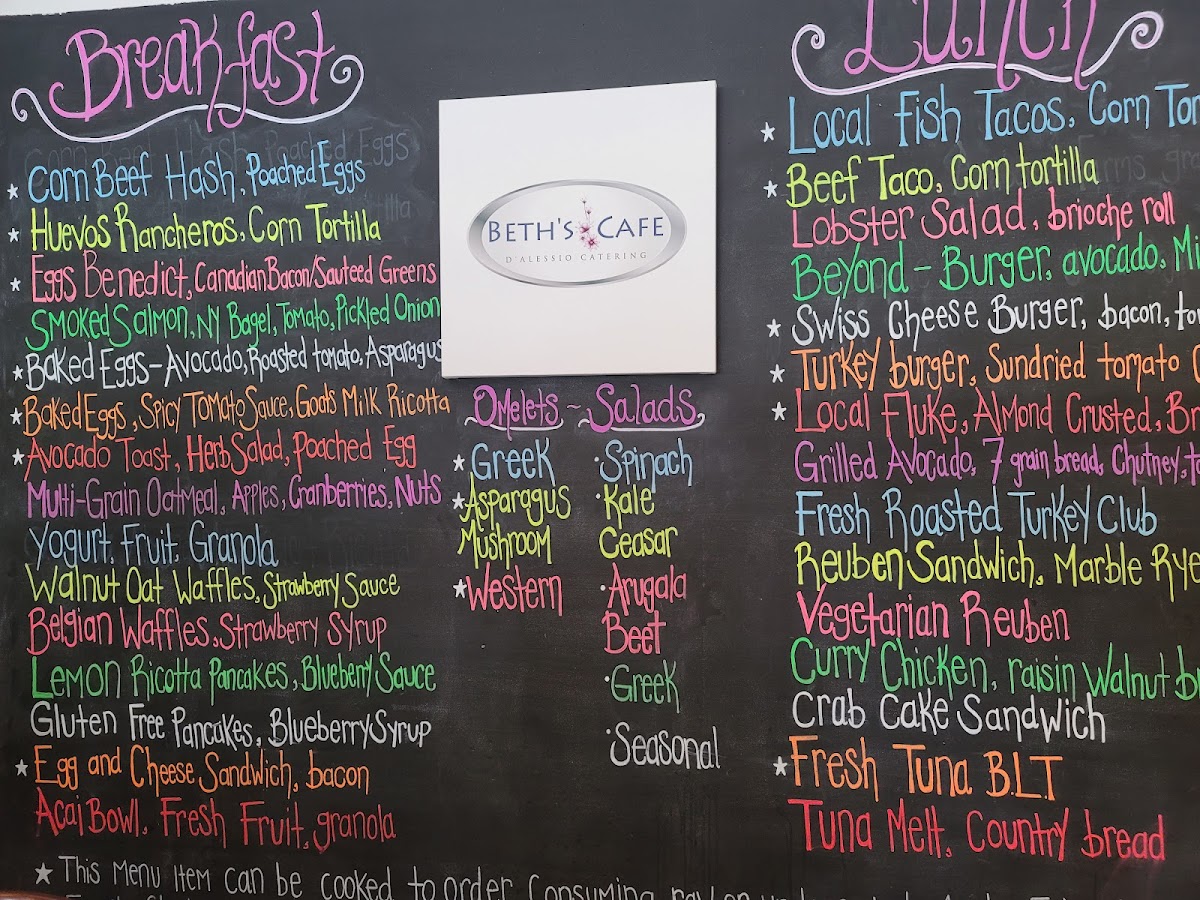 Breakfast
★ Corn Beef Hash, Poached Eggs
★ Huevos Rancheros, Corn Tortilla
★ Eggs Benedict, Canadian Bacon/Sauteed Greens
Smoked Salmon, NY Bagel, Tomato, Pickled Onion
★ Baked Eggs - Avocado, Roasted tomato, Asparagus
★ Baked Eggs, Spicy Tomato Sauce, Goats Milk Ricotta
★ Avocado Toast, Herb Salad, Poached Egg
Multi-Grain Oatmeal, Apples, Cranberries, Nuts
Yogurt, Fruit, Granola
Walnut Oat Waffles, Strawberry Sauce
Belgian Waffles, Strawberry Syrup
Lemon Ricotta Pancakes, Blueberry Sauce
Gluten Free Pancakes, Blueberry Syrup
★ Egg and Cheese Sandwich, bacon
Acai Bowl, Fresh Fruit, granola
BETH'S CAFE
D'ALESSIO CATERING
Omelets -
★ Greek
★ Asparagus
Mushroom
★ Western
Salads
· Spinach
· Kale
Ceasar
· Arugala
Beet
· Greek
· Seasonal
Lunch
★ Local Fish Tacos, Corn Tor
★ Beef Taco, Corn tortilla
Lobster Salad, brioche roll
Beyond - Burger, avocado, Mi
★ Swiss Cheese Burger, bacon, to
★ Turkey burger, Sundried tomato
★ Local Fluke, Almond Crusted, Br
Grilled Avocado, 7 grain bread, Chutney, t
Fresh Roasted Turkey Club
Reuben Sandwich, Marble Rye
Vegetarian Reuben
Curry Chicken, raisin Walnut b
Crab Cake Sandwich
★ Fresh Tuna B.L.T
Tuna Melt, Country bread
★ This menu item can be cooked to order Consuming